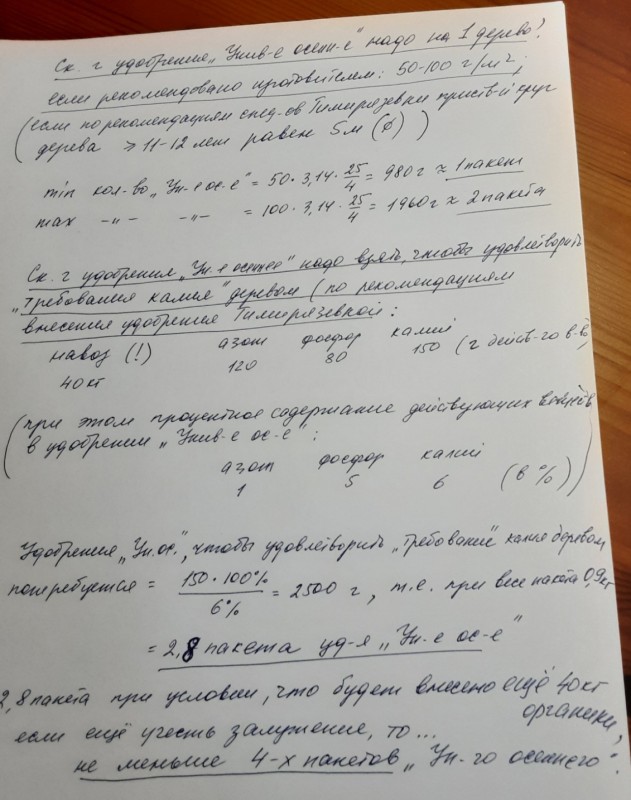 Ск. г удобрения „Унив-е осенн-е" надо на 1 дерево?
если рекомендовано изготовителем: 50-100 г/м²;
(если по рекомендациям спец-ов Тимирязевки приств-й круг
дерева ⩾ 11-12 лет равен 5м (ø))
min кол-во „Ун-е ос-е" = 50 · 3,14 · 25/4 = 980г ≈ 1 пакет
max -„- -„- = 100 · 3,14 · 25/4 = 1960г ≈ 2 пакета
Ск. г удобрения „Ун-е осеннее" надо взять, чтобы удовлетворить
„требования калия" деревом (по рекомендациям
внесения удобрения Тимирязевкой:
навоз (!) азот фосфор калий
40кг 120 80 150 (г действ-го в-ва
(при этом процентное содержание действующих
в удобрении „Унив-е ос-е":
азот фосфор калий
1 5 6 (в %))
Удобрения „Ун.ос.", чтобы удовлетворить „требование" калия деревом
потребуется = 150 · 100% / 6% = 2500 г, т.е. при весе пакета 0,9кг
= 2,8 пакета уд-я „Ун-е ос-е"
2,8 пакета при условии, что будет внесено ещё 40кг
органики,
если ещё учесть залужение, то...
не меньше 4-х пакетов „Ун-го осеннего".